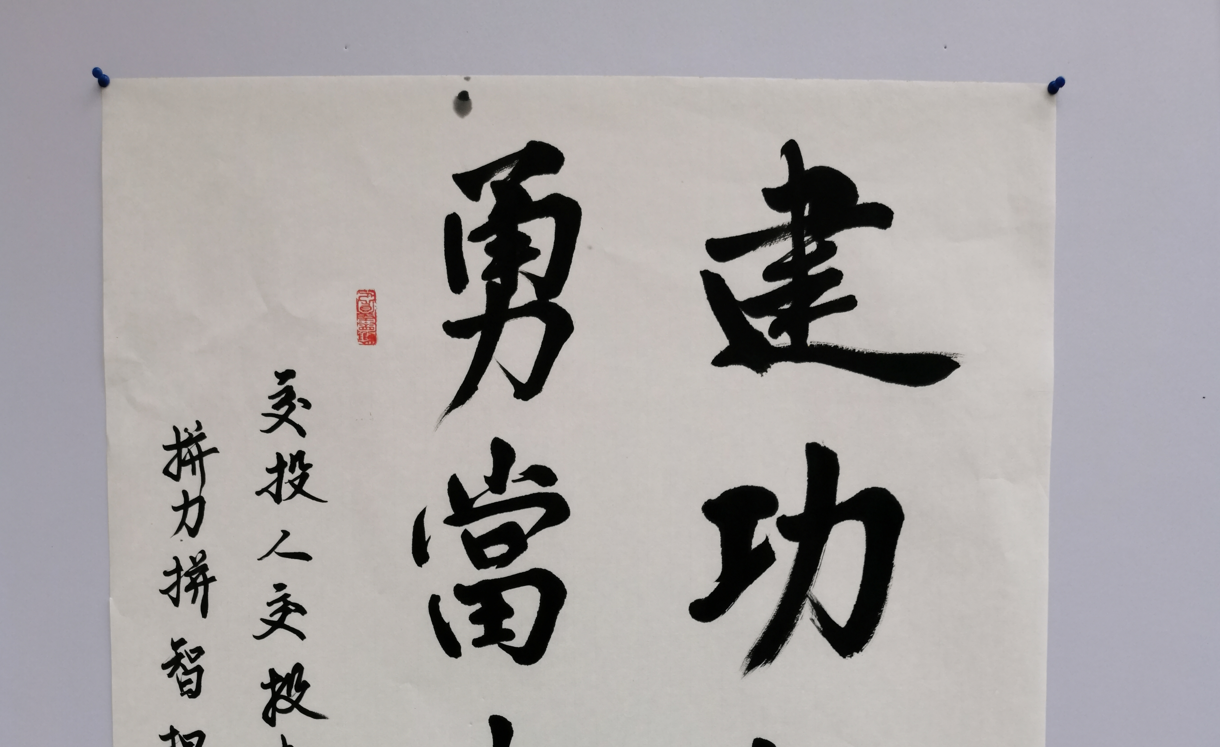 建功
勇當
交投人交投
拼力拼智